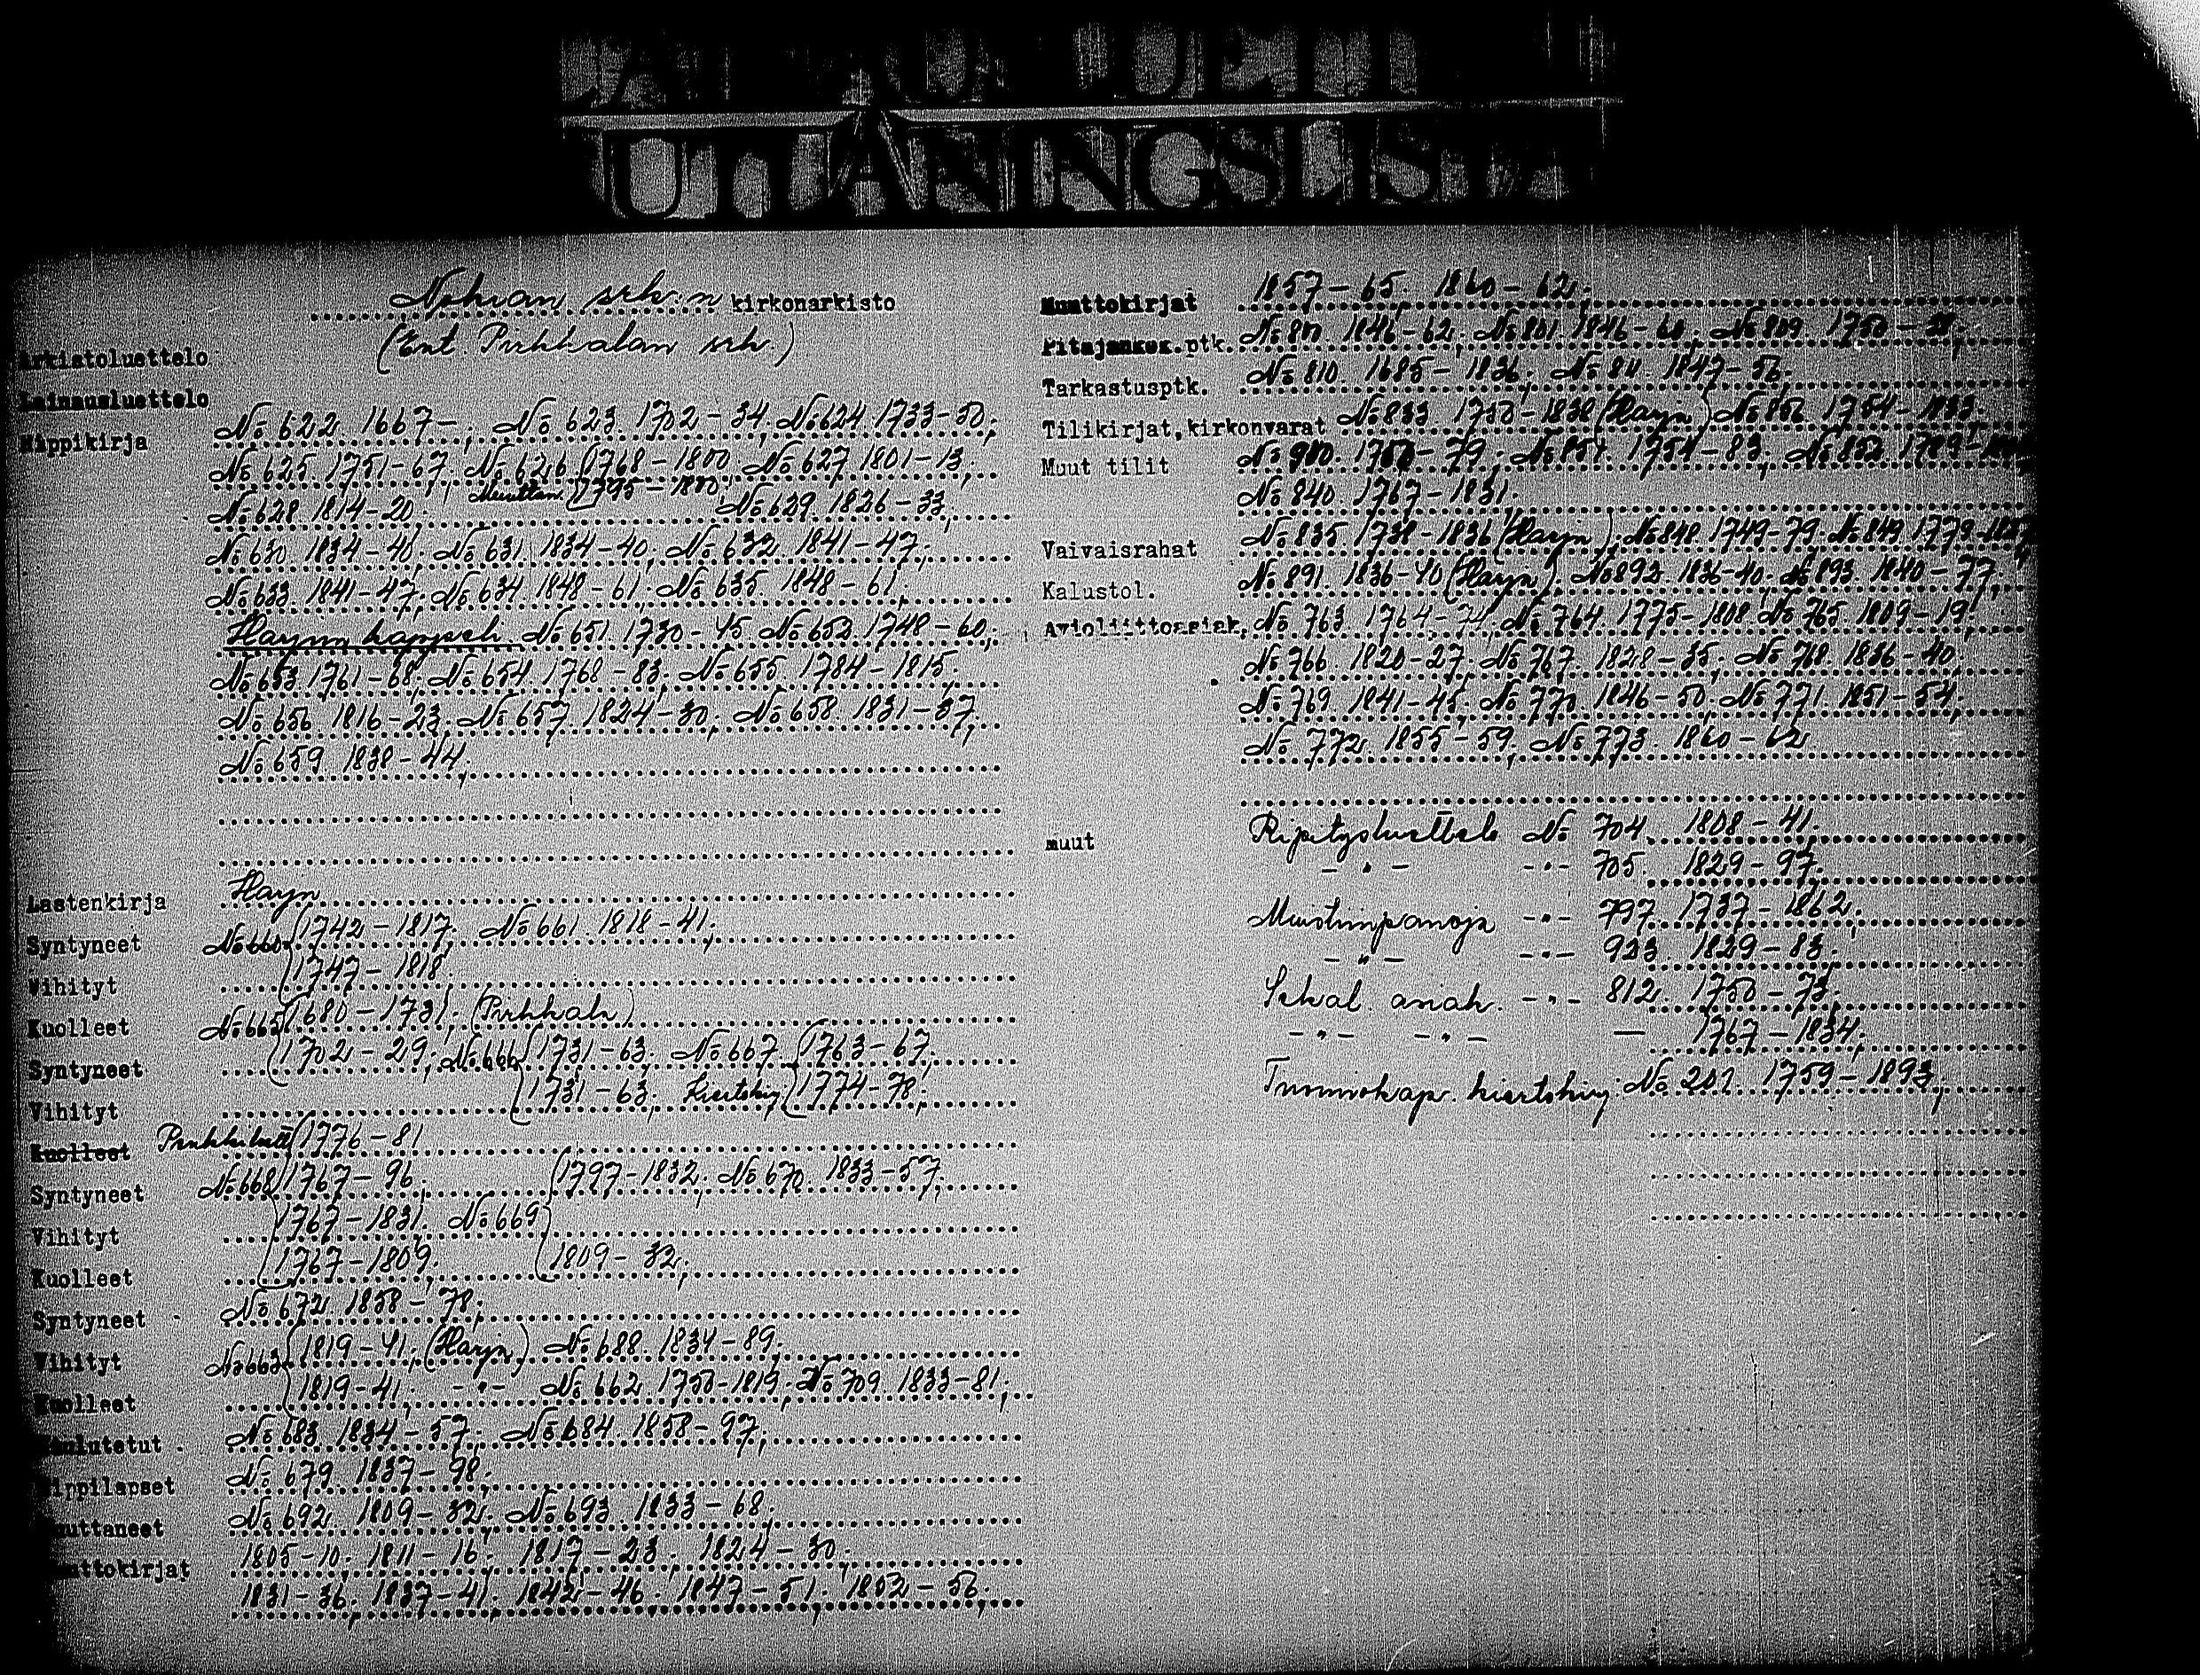 UTLÅNINGSLISTA
Nokian srk:n kirkonarkisto
(Ent. Pirkkalan srk.)
Arkistoluettelo
Lainausluettelo
Rippikirja No 622 1667-; No 623. 1702-34; No 624 1733-50;
No 625 1751-67; No 626 1768-1800; No 627 1801-13;
Muuttan. 1795-1800
No 628 1814-20; No 629 1826-33;
No 630 1834-40; No 631 1834-40; No 632 1841-47;
No 633 1841-47; No 634 1848-61; No 635 1848-61;
Harjun kappsrk. No 651 1730-45 No 652 1748-60;
No 653 1761-68; No 654 1768-83; No 655 1784-1815;
No 656 1816-23; No 657 1824-30; No 658 1831-37;
No 659 1838-44;
Lastenkirja Harju
Syntyneet No 660 1742-1817; No 661 1818-41;
Vihityt 1747-1818
Kuolleet No 665 1680-1731; (Pirkkala)
Syntyneet 1702-29; No 666 1731-63; No 667 1763-67;
Vihityt 1731-63; Kiertokirj. 1774-78;
Kuolleet 1776-81
Syntyneet No 668 1767-96; 1797-1832; No 670 1833-57;
Vihityt 1767-1831; No 669
Kuolleet 1767-1809; 1809-32;
Syntyneet No 672 1858-78;
Vihityt No 663 1819-41; (Harju) No 688 1834-89;
Kuolleet 1819-41; -"- No 662 1750-1819; No 709 1833-81;
Kuulutetut No 683 1834-57; No 684 1858-97;
Rippilapset No 679 1837-98;
Muuttaneet No 692 1809-32; No 693 1833-68;
Muuttokirjat 1805-10; 1811-16; 1817-23; 1824-30;
1831-36; 1837-41; 1842-46; 1847-51; 1852-56;
Muuttokirjat 1857-65; 1860-62;
Pitäjänkok.ptk. 1846-62; No 801 1846-60; No 809 1750-38;
Tarkastusptk. No 810 1685-1836; No 811 1847-56;
Tilikirjat,kirkonvarat No 833 1750-1838 (Harju)
Muut tilit
No 840 1767-1831;
Vaivaisrahat No 835 1738-1836 (Harju); No 848 1749-79;
Kalustol. No 891 1836-40 (Harju); No 892 1836-40; No 893 1840-77;
Avioliittoasiak. No 763 1764-74; No 764 1775-1808 No 765 1809-19
No 766 1820-27; No 767 1828-35; No 768 1836-40;
No 769 1841-45; No 770 1846-50; No 771 1851-54;
No 772 1855-59; No 773 1860-62
muut Ripitysluettelo No 704 1808-41;
-"- -"- 705 1829-97;
Muistiinpanoja -"- 797 1737-1862;
-"- -"- 923 1829-83;
Sekal. asiak. -"- 812 1750-73;
-"- -"- — 1767-1834;
Tuomiokap. kiertokirj. No 201 1759-1893;